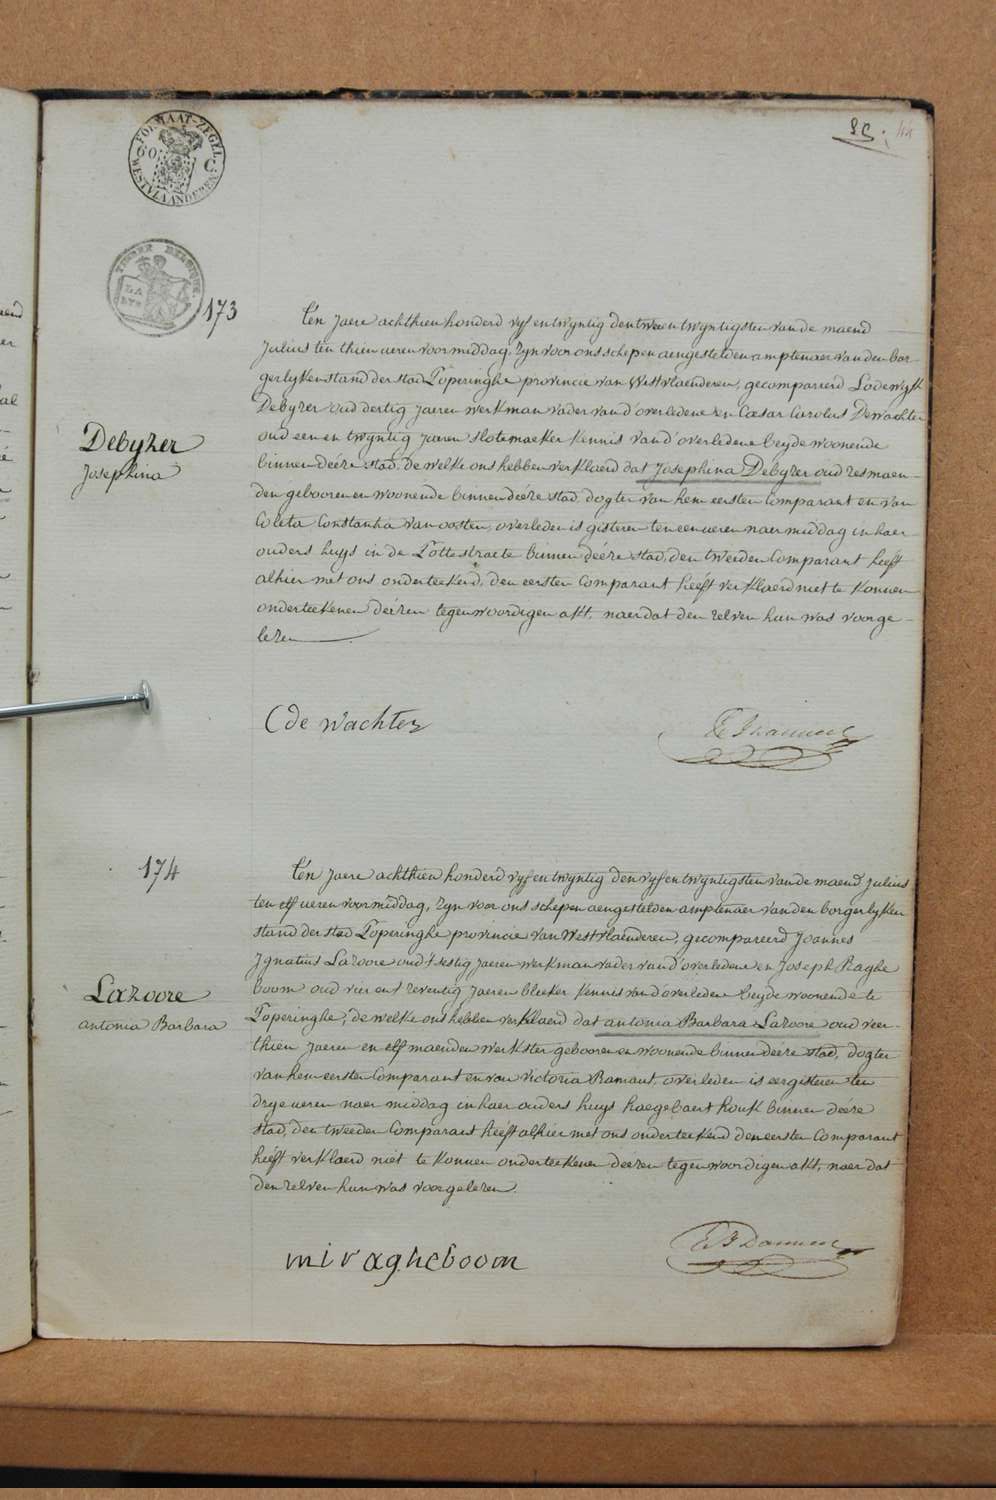 FORMAAT-ZEGEL
60 C
WESTVLAANDEREN
TIMBRE BELGIQUE
LA
173
Ten Jaere achthien honderd vyf en twyntig den twee en twyntigsten van de maend
Julius ten thien ueren voormiddag, zyn voor ons schepen aengestelden amptenaer van den bor-
gerlyken stand der stad Poperinghe provincie van Westvlaenderen, gecompareerd Lodewyk
Debyzer oud dertig Jaeren werkman vader van d'overledene en Cæsar Carolus Dewachter
oud een en twyntig Jaeren slotemaeker kennis van d'overledene beyde woonende
binnen deéze stad, de welke ons hebben verklaerd dat Josephina Debyzer oud zes maen-
den gebooren en woonende binnen deéze stad, dogter van hem eersten Comparant en van
Coleta Constantia van oosten, overleden is gisteren ten een ueren naer middag in haer
ouders huys in de Potte straete binnen deéze stad, den tweeden Comparant heeft
alhier met ons onderteekend, den eersten Comparant heéft verklaerd niet te konnen
onderteekenen deézen tegenwoordigen akt, naer dat den zelven hun was voorge-
lezen
Debyzer
Josephina
C de Wachter
174
Ten Jaere achthien honderd vyf en twyntig den vyf en twyntigsten van de maend Julius
ten elf ueren voormiddag, zyn voor ons schepen aengestelden amptenaer van den borgerlyken
stand der stad Poperinghe provincie van Westvlaenderen, gecompareerd Joannes
Ignatius Lazoore oud t'sestig Jaeren werkman vader van d'overledene en Joseph Raghe
boom oud vier en t'zeventig Jaeren bleeker kennis van d'overledene beyde woonende te
Poperinghe, de welke ons hebben verklaerd dat antonia Barbara Lazoore oud veer-
thien Jaeren en elf maenden werkster gebooren en woonende binnen deéze stad, dogter
van hem eersten Comparant en van Victoria Ramaut, overleden is eergisteren ten
drye ueren naer middag in haer ouders huys haegebaert houk binnen deéze
stad, den tweeden Comparant heeft alhier met ons onderteekend den eersten Comparant
heéft verklaerd niét te konnen onderteekenen deezen tegenwoordigen akt, naer dat
den zelven hun was voorgelezen
Lazoore
antonia Barbara
miragheboom